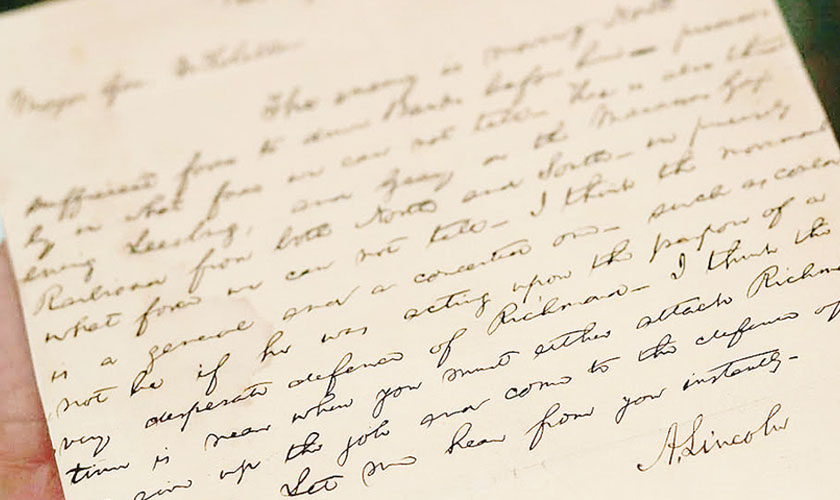 Major Gen. McClellan
The enemy is moving North
sufficient force to drive Banks before him
ly in what force we can not tell. He is also threat
ening Leesburg, and Geary on the Manassas Gap
Railroad from both North and South— in precisely
what force we can not tell— I think the movement
is a general and concerted one— such as could
not be if he was acting upon the purpose of a
very desperate defence of Richmond— I think the
time is near when you must either attack Richmond
give up the job and come to the defence of
Let me hear from you instantly—
A. Lincoln